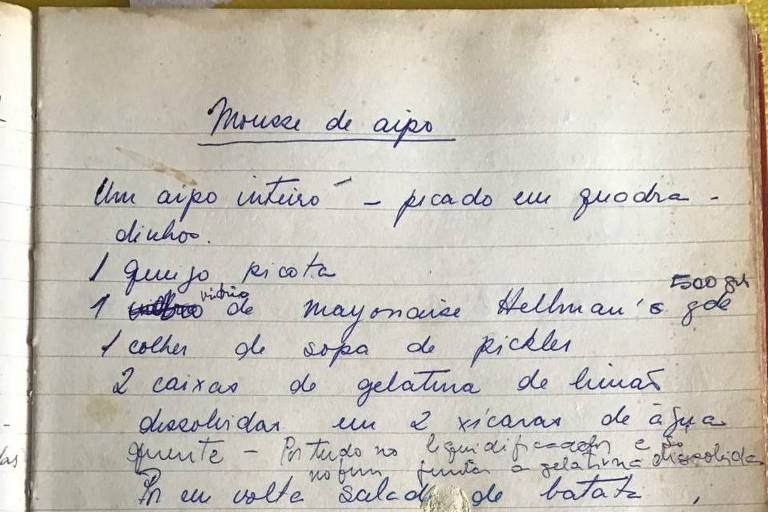 Mousse de aipo
Um aipo inteiro – picado em quadra-
dinhos.
1 queijo picota
500 gr
1 vidro de mayonaise Hellman's gde
1 colher de sopa de pickles
2 caixas de gelatina de limão
dissolvidas em 2 xícaras de água
quente – Por tudo no liquidificador e só
no fim juntar a gelatina dissolvida
Por em volta salada de batata,